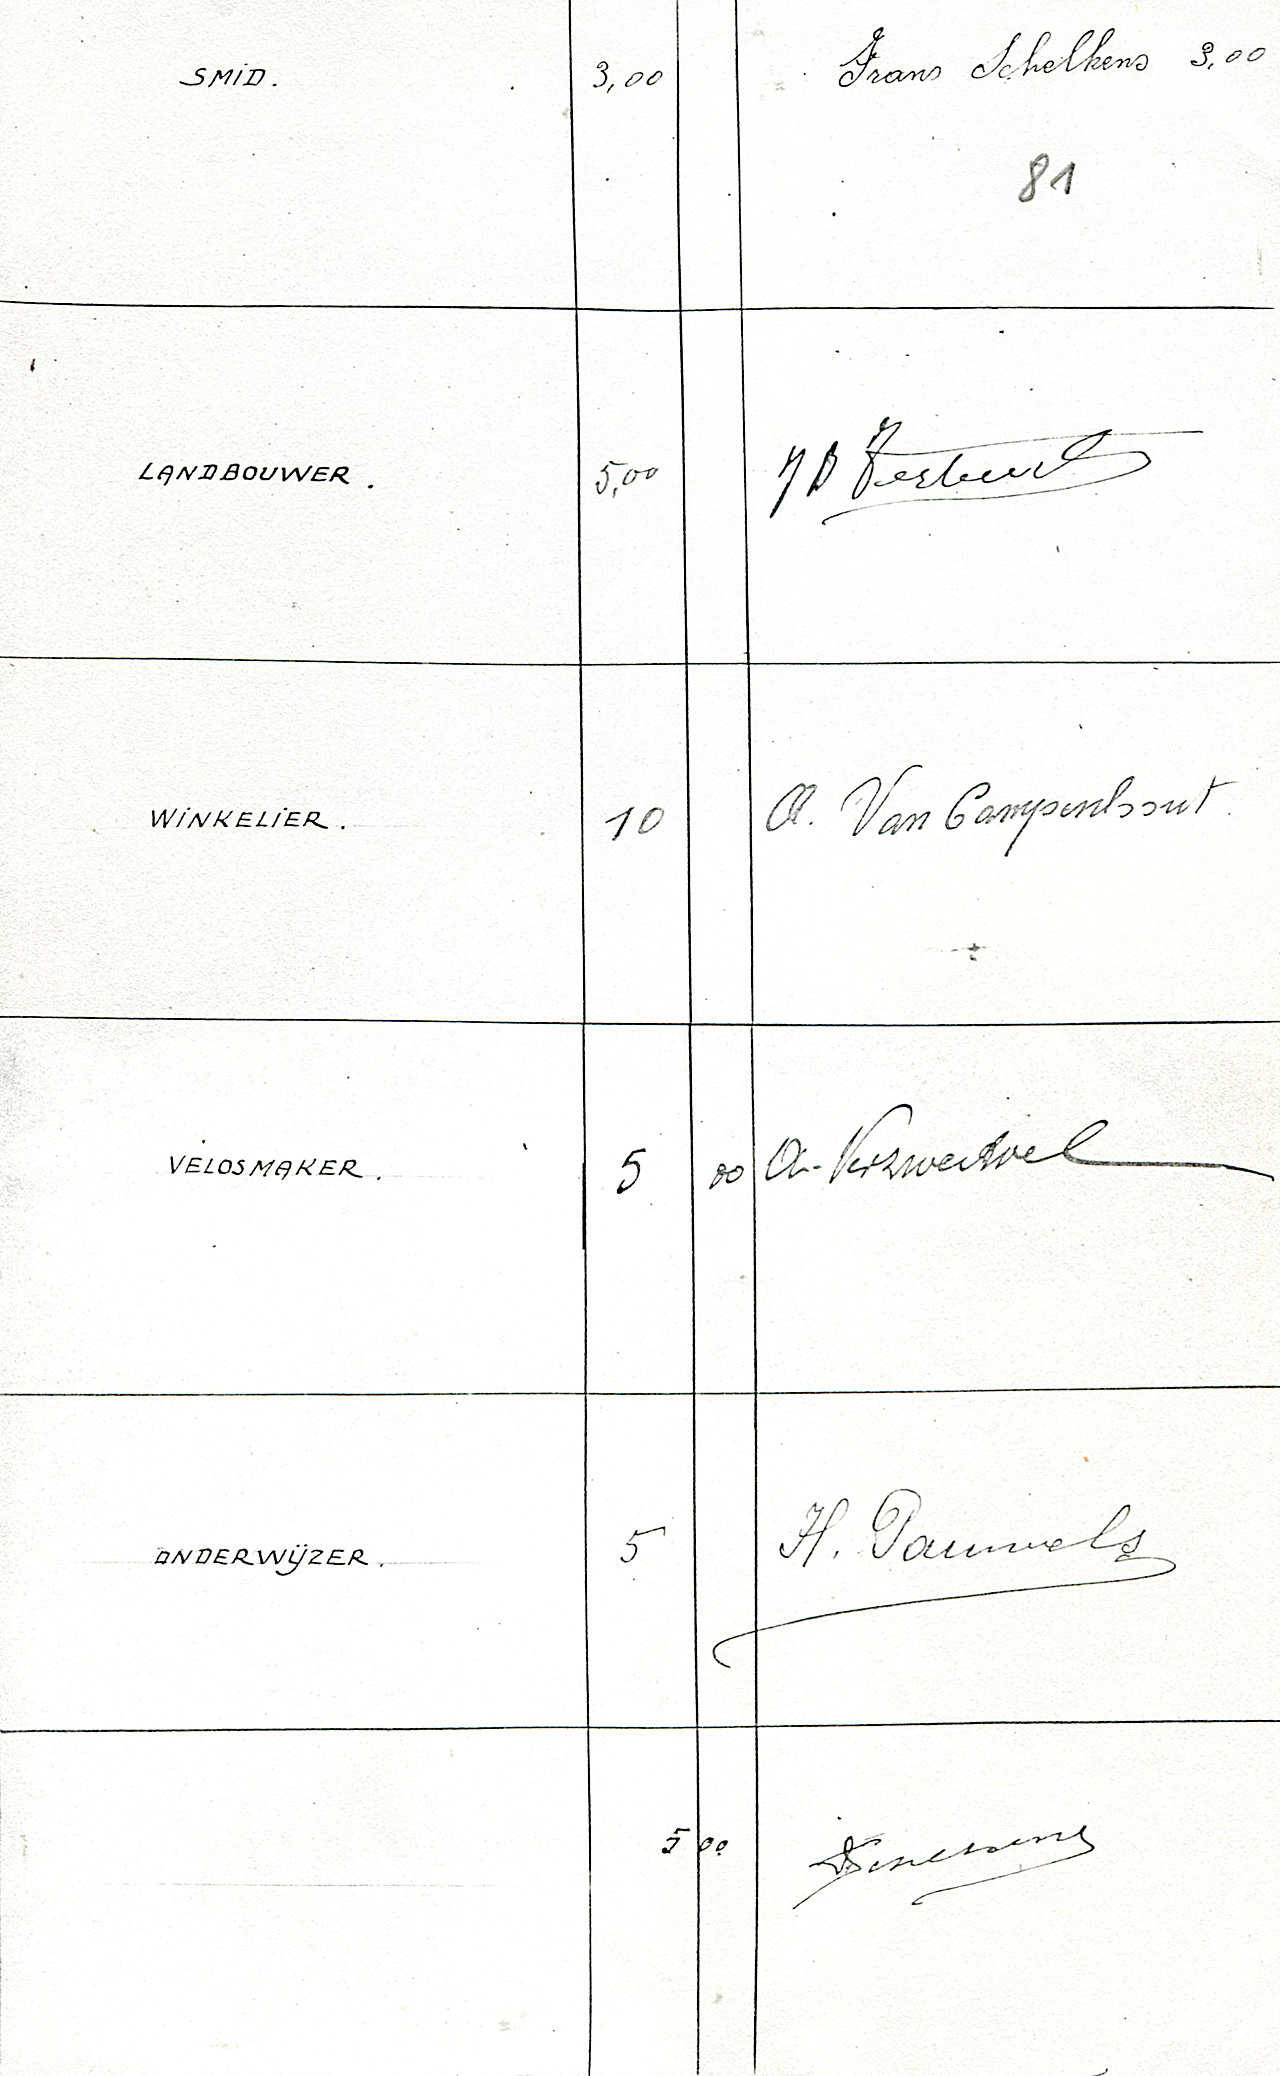 SMID. 3,00 Frans Schelkens 3,00
81
LANDBOUWER. 5,00 J B
WINKELIER. 10 A. Van Campenhout
VELOSMAKER. 5 00 A.
ONDERWIJZER. 5 H. Pauwels
5 00